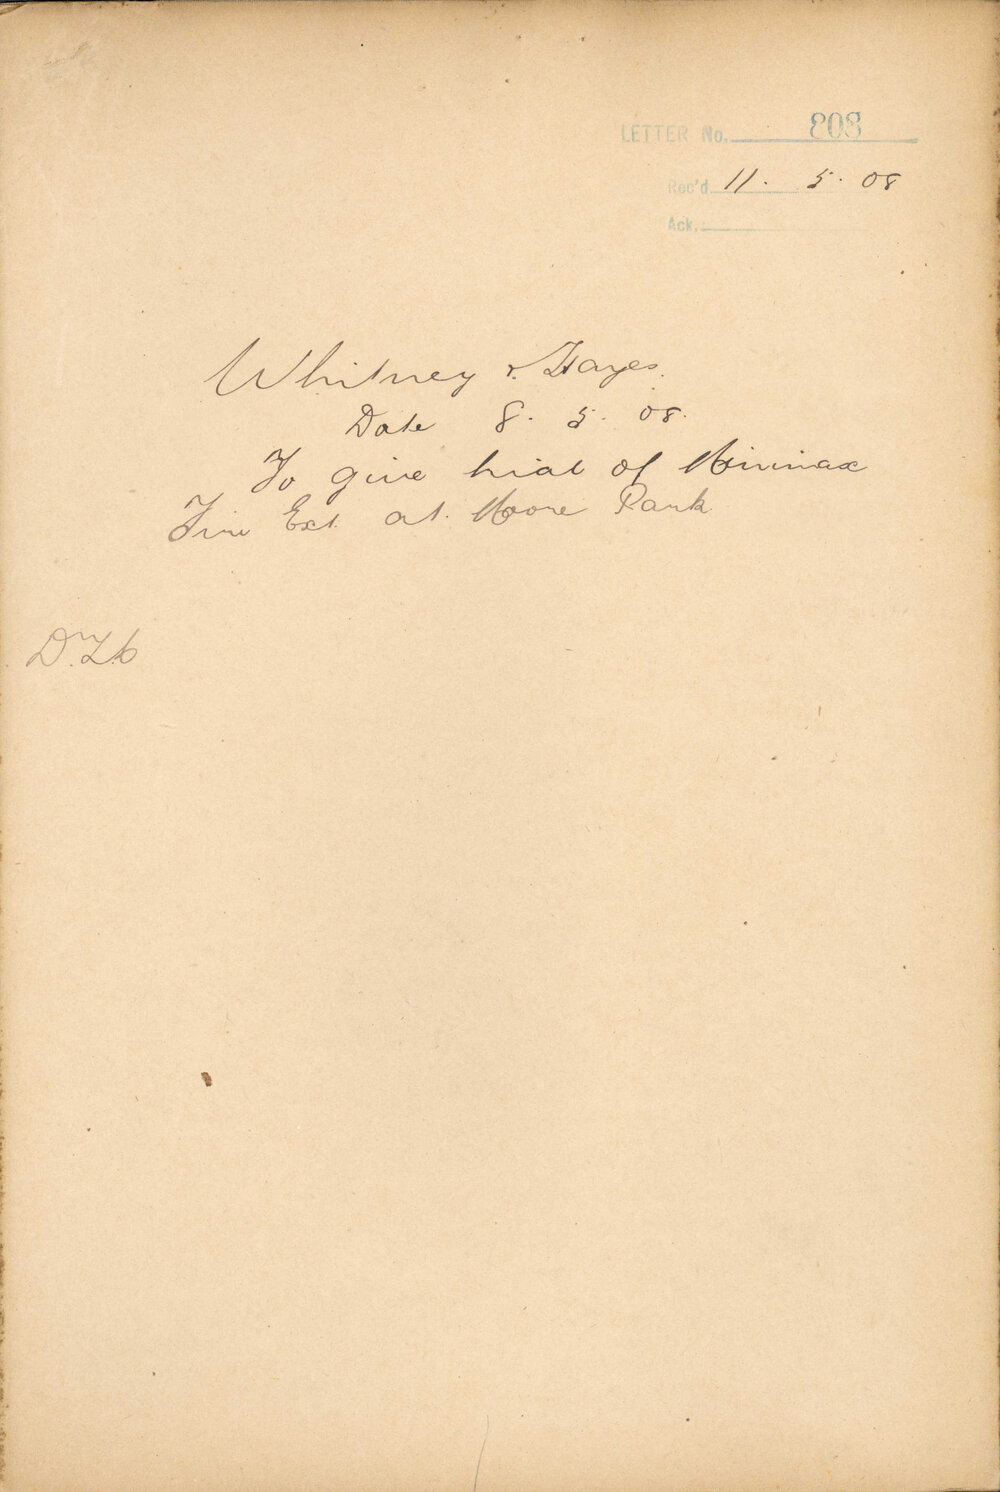 LETTER No. 803
Rec'd 11. 5. 08
Ack.
Whitney & Hayes.
Date 8. 5. 08.
To give trial of Minimax
Fire Ext. at. Moore Park